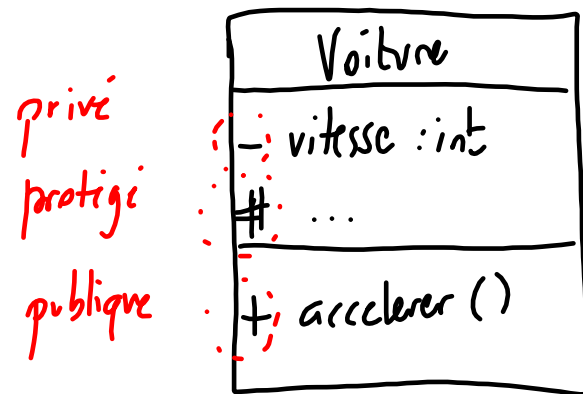 Voiture
privé - vitesse : int
protégé # ...
publique + accelerer ()